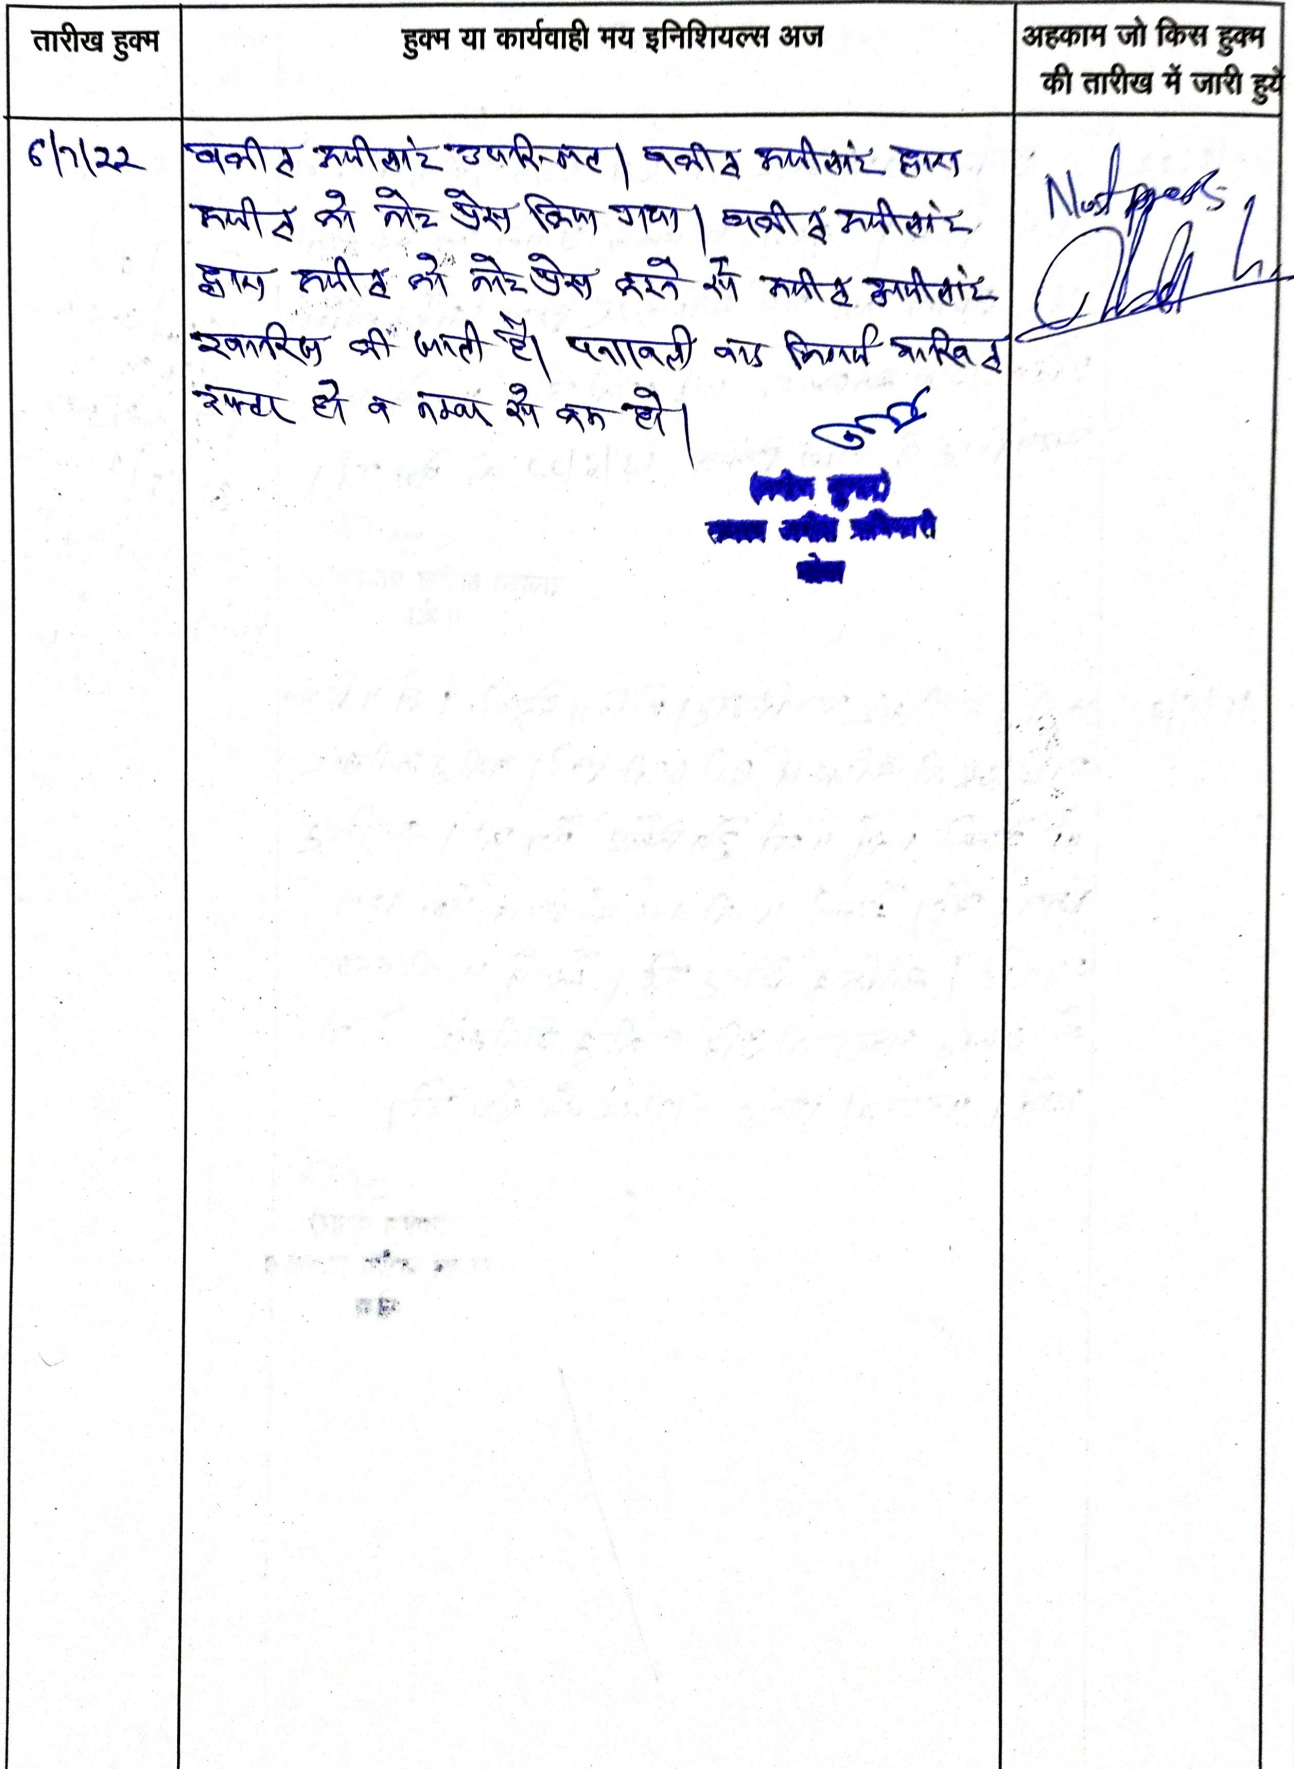 तारीख हुक्म
हुक्म या कार्यवाही मय इनिशियल्स अज
अहकाम जो किस हुक्म
की तारीख में जारी हुये
6/7/22
वकील अपीलांट उपस्थित। वकील अपीलांट द्वारा
अपील को नोट प्रेस किया गया। वकील अपीलांट
द्वारा अपील को नोट प्रेस करने से अपील अपीलांट
खारिज की जाती है। पत्रावली बाद निर्णय दाखिल
दफ्तर हो व नम्बर से कम हो।
Not press
कुमार)
अपील